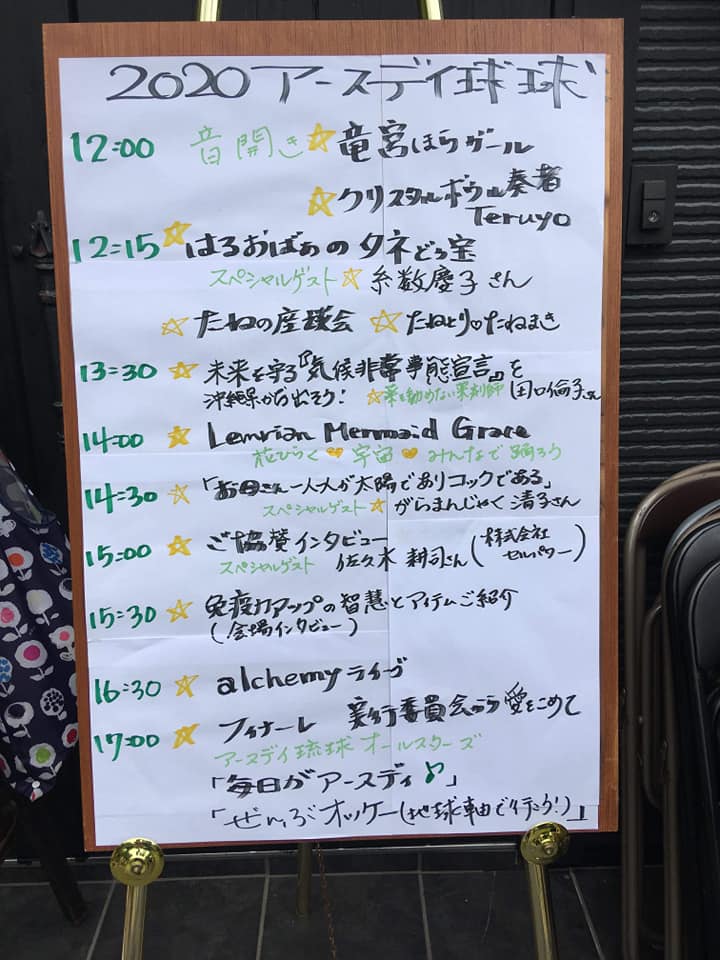 2020 アースデイ球球
12:00 音開き☆竜宮ほらガール
☆クリスタルボウル奏者
Teruyo
12:15☆はるおばぁのタネどぅ宝
スペシャルゲスト☆糸数慶子さん
☆たねの座談会 ☆たねとり♡たねまき
13:30 ☆未来を守る『気候非常事態宣言』を
沖縄県から出そう! ☆薬を勧めない薬剤師 田口倫子さん
14:00 ☆Lemrian Mermaid Grace
花ひらく♡宇宙♡みんなで踊ろう
14:30 ☆「お母さん一人一人が太陽でありコックである」
スペシャルゲスト☆がらまんじゃく 清子さん
15:00 ☆ご協賛インタビュー
スペシャルゲスト 佐久木 耕司さん(株式会社セルパワー)
15:30 ☆免疫力アップの智慧とアイテムご紹介
(会場インタビュー)
16:30 ☆alchemy ライブ
17:00 ☆フィナーレ 実行委員会から愛をこめて
アースデイ琉球オールスターズ
「毎日がアースディ♪」
「ぜんぶオッケー(地球軸で行こう!)」